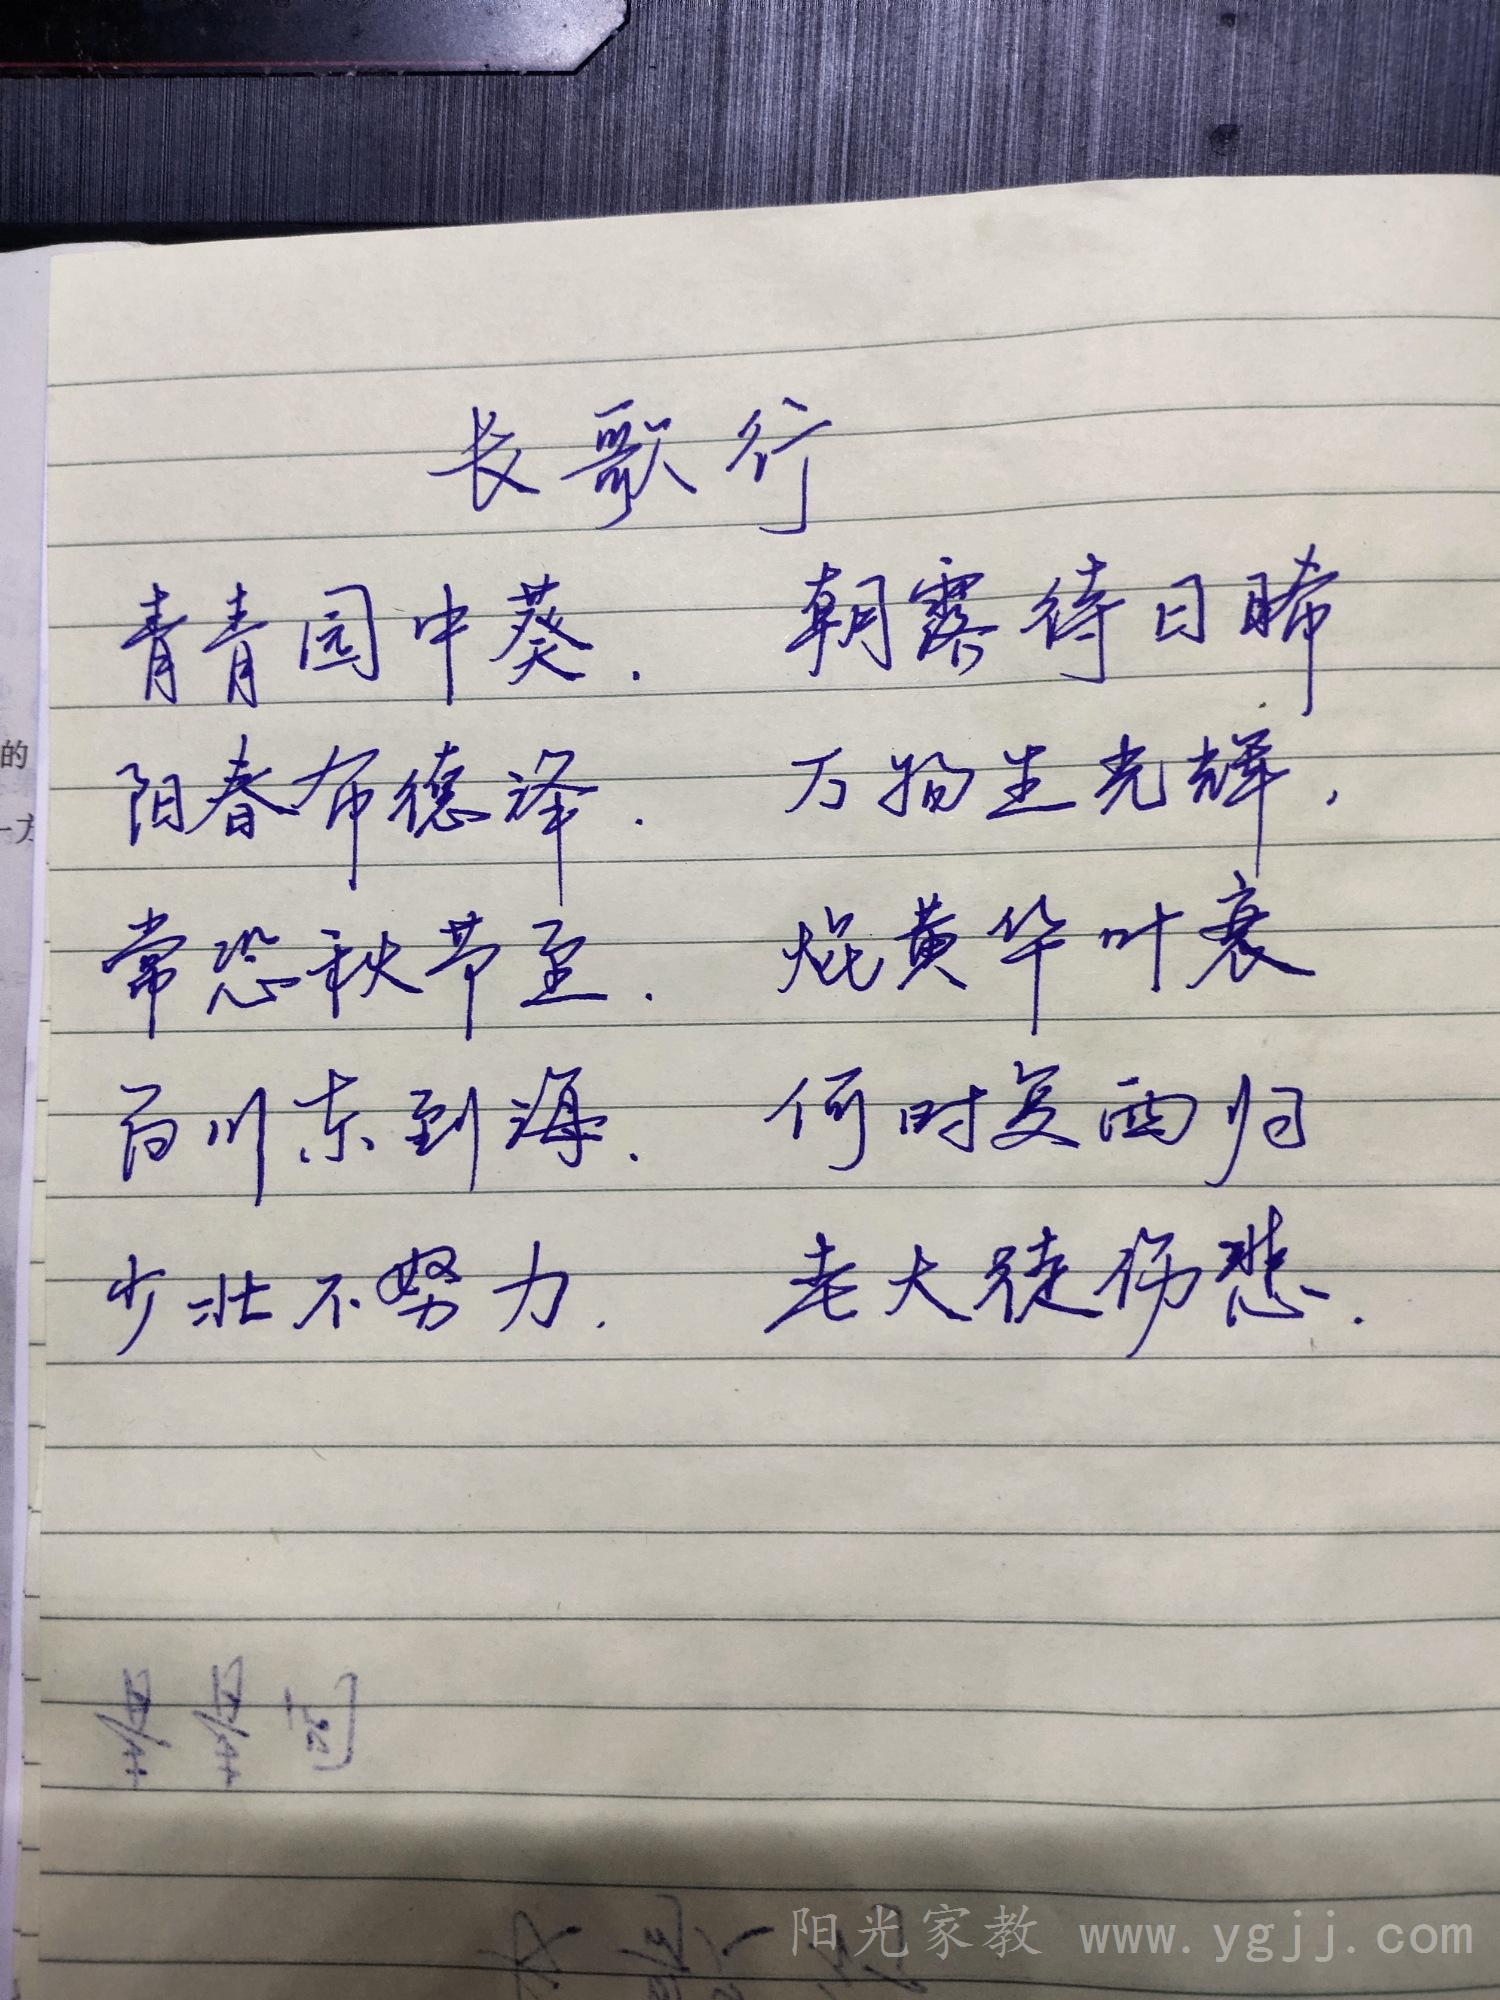 长歌行
青青园中葵. 朝露待日晞
阳春布德泽. 万物生光辉,
常恐秋节至. 焜黄华叶衰
百川东到海. 何时复西归
少壮不努力. 老大徒伤悲.
的
一方
阳光家教 www.ygjj.com